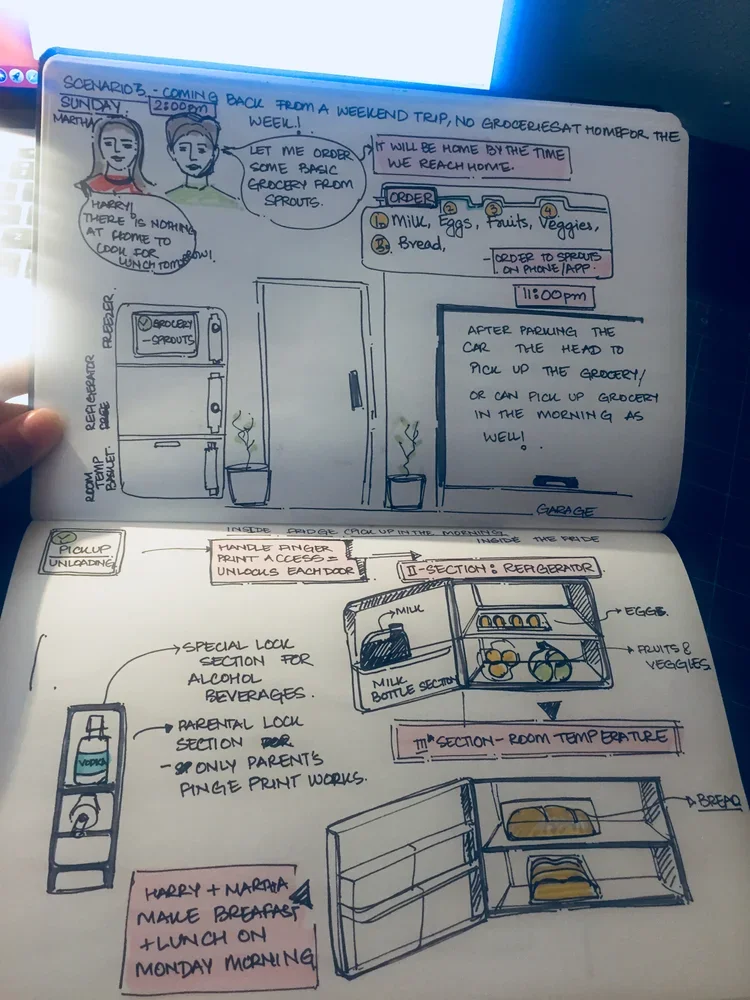 SCENARIO 3 - COMING BACK FROM A WEEKEND TRIP, NO GROCERIES AT HOME FOR THE
WEEK!
SUNDAY 2:00pm
MARTHA
LET ME ORDER
SOME BASIC
GROCERY FROM
SPROUTS.
IT WILL BE HOME BY THE TIME
WE REACH HOME.
HARRY!
THERE IS NOTHING
AT HOME TO
COOK FOR
LUNCH TOMORROW!
ORDER
1. Milk, 2 Eggs, 3 Fruits, 4 Veggies,
Bread,
- ORDER TO SPROUTS
ON PHONE/APP.
11:00pm
FREEZER
REFIGERATOR
ROOM
TEMP
BASKET
GROCERY
- SPROUTS
AFTER PARKING THE
CAR THE HEAD TO
PICK UP THE GROCERY/
OR CAN PICK UP GROCERY
IN THE MORNING AS
WELL!
GARAGE
PICKUP
UNLOADING
INSIDE FRIDGE (PICK UP IN THE MORNING
INSIDE THE FRIDE
HANDLE FINGER
PRINT ACCESS =
UNLOCKS EACH DOOR
II - SECTION: REFIGERATOR
MILK
MILK
BOTTLE SECTION
EGGS.
FRUITS &
VEGGIES
SPECIAL LOCK
SECTION FOR
ALCOHOL
BEVERAGES.
PARENTAL LOCK
SECTION FOR
- ONLY PARENT'S
FINGE PRINT WORKS.
VODKA
III SECTION - ROOM TEMPERATURE
BREAD
HARRY + MARTHA
MAKE BREAFAST
+ LUNCH ON
MONDAY MORNING